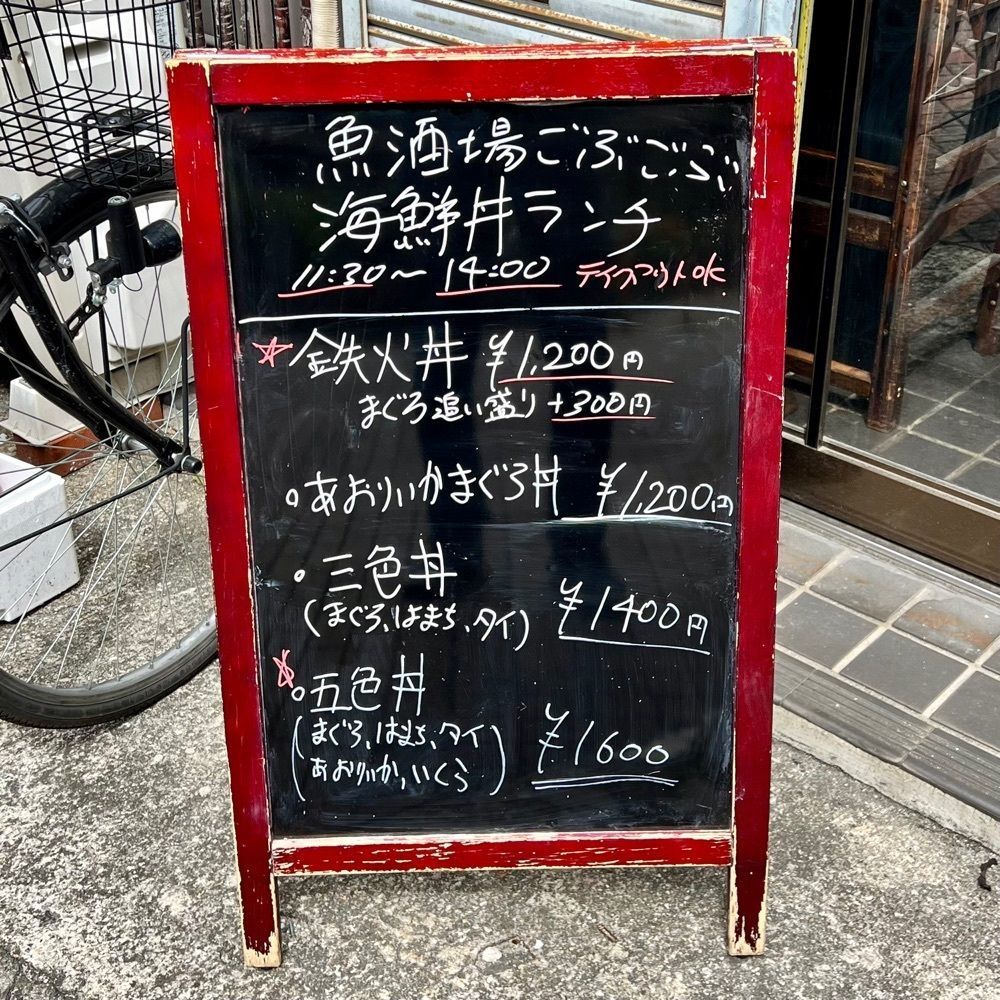 魚酒場ごぶごぶ
海鮮丼ランチ
11:30〜14:00 テイクアウトOK
☆鉄火丼 ¥1,200円
まぐろ追い盛り+300円
○あおりいかまぐろ丼 ¥1,200円
○三色丼
(まぐろ、はまち、タイ) ¥1400円
☆○五色丼
(まぐろ、はまち、タイ
あおりいか、いくら) ¥1600